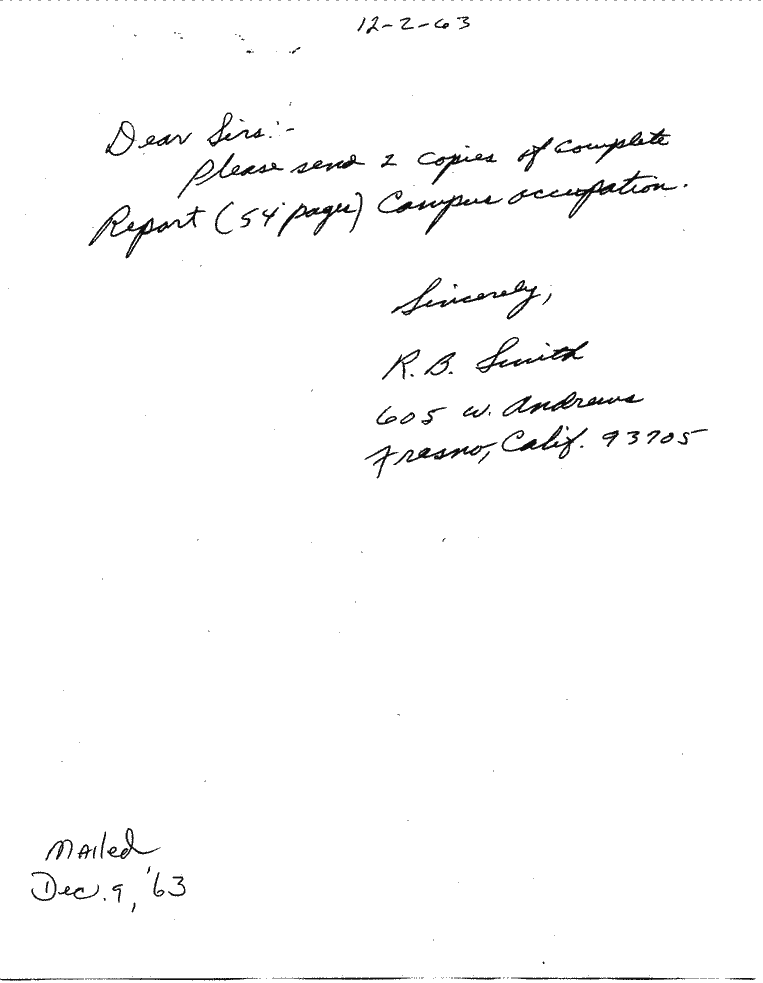 12-2-63
Dear Sirs:-
Please send 2 copies of complete
Report (54 pages) Campus occupation.
Sincerely,
R.B. Smith
605 W. Andrews
Fresno, Calif. 93705
Mailed
Dec. 9, '63